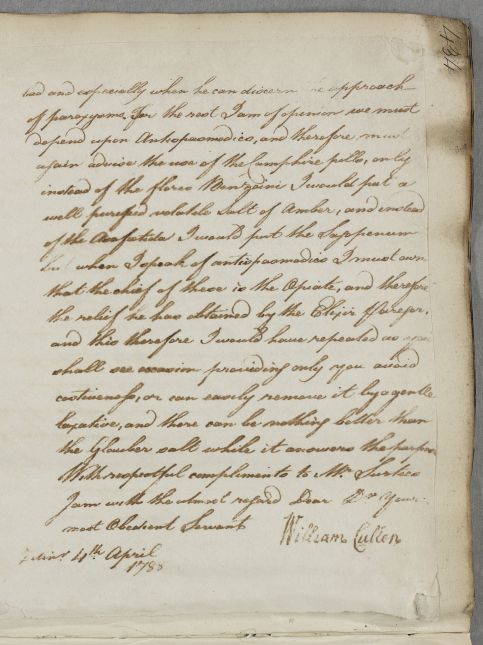 484
and especially when he can discern approach
of paroxysms. For the rest I am of opinion we must
depend upon Antispasmodics, and therefore must
again advise the use of the Camphire pills, only
instead of the flores Benzoini I would put a
well purefied volatile Salt of Amber, and instead
of the Assafœtida I would put the Sagapenum
but when I speak of antispasmodics I must own
that the chief of these is the Opiate, and therefore
the relief he has obtained by the Elixir
and this therefore I would have repeated as you
shall see occasion providing only you avoid
costiveness, or can easily remove it by a gentle
laxative, and there can be nothing better than
the Glauber salt while it answers the purpose
With respectful compliments to Mr. Surtees
I am with the utmost regard Dear Sir Your
most Obedient Servant
William Cullen
Edinr. 4th April
178